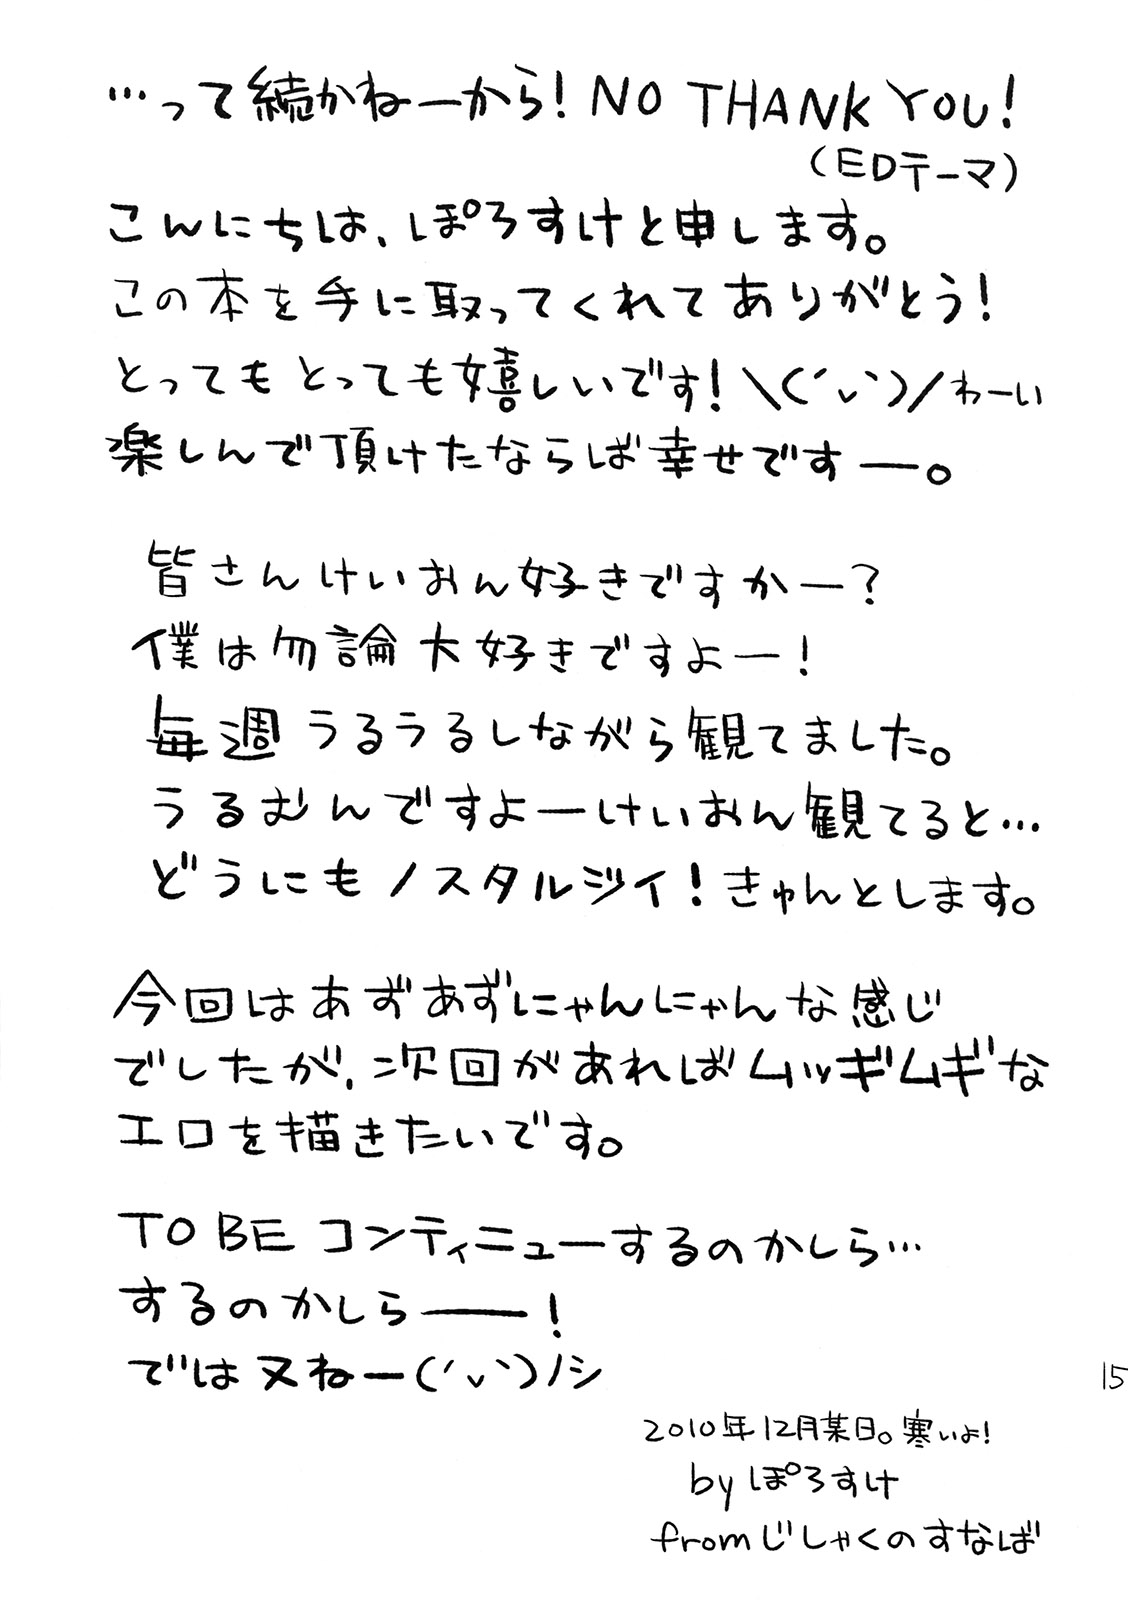 …って続かねーから！NO THANK YOU！
（EDテーマ）
こんにちは、ぽろすけと申します。
この本を手に取ってくれてありがとう！
とってもとっても嬉しいです！＼(´ヽ`)／わーい
楽しんで頂けたならば幸せですー。
皆さんけいおん好きですかー？
僕は勿論大好きですよー！
毎週うるうるしながら観てました。
うるむんですよーけいおん観てると…
どうにもノスタルジイ！きゅんとします。
今回はあずあずにゃんにゃんな感じ
でしたが、次回があればムッギムギな
エロを描きたいです。
TO BE コンティニューするのかしら…
するのかしらーー！
では又ねー(´ヽ`)ノシ
15
2010年12月某日。寒いよ！
by ぽろすけ
from じしゃくのすなば